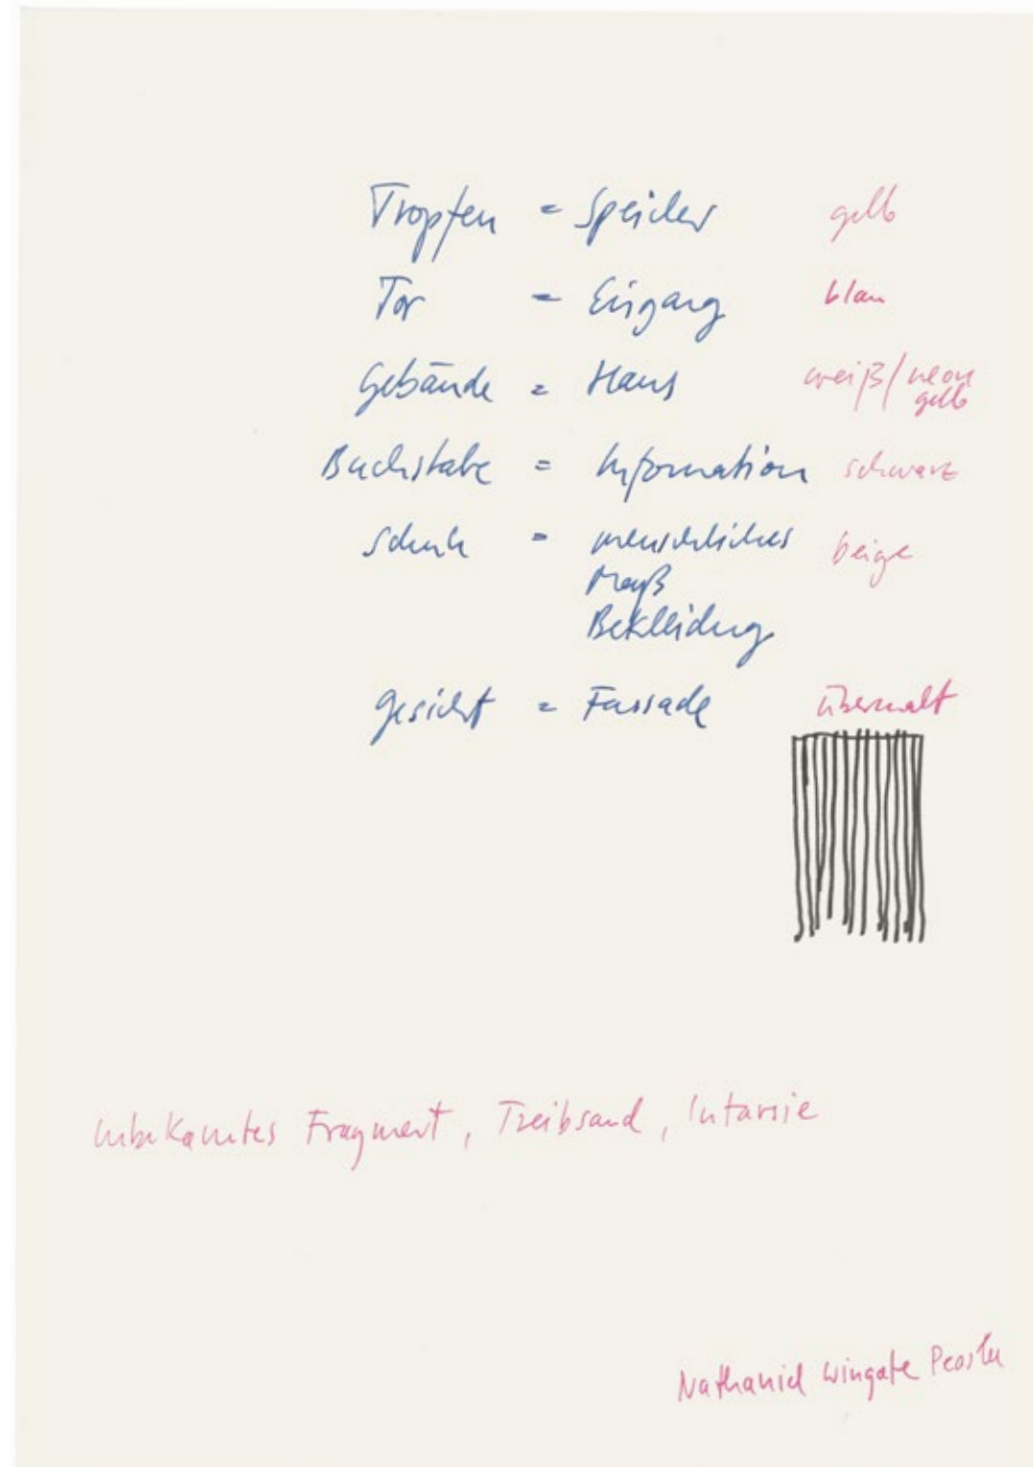 Tropfen = Speicher gelb
Tor = Eingang blau
Gebäude = Haus weiß/neon
gelb
Buchstabe = Information schwarz
Schuh = menschliches beige
Maß
Bekleidung
Gesicht = Fassade übermalt
unbekanntes Fragment, Treibsand, Intarsie
Nathaniel Wingate Peaslee